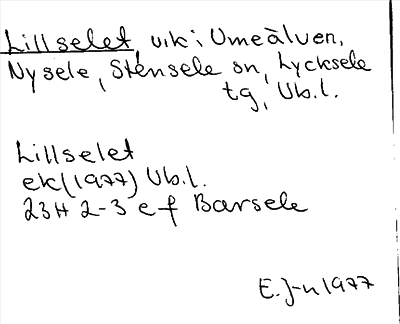 Lillselet, vik i Umeälven,
Nysele, Stensele sn, Lycksele
tg, Vb.l.
Lillselet
ek (1977) Vb.l.
23H 2-3 e f Barsele
E. J-n 1977